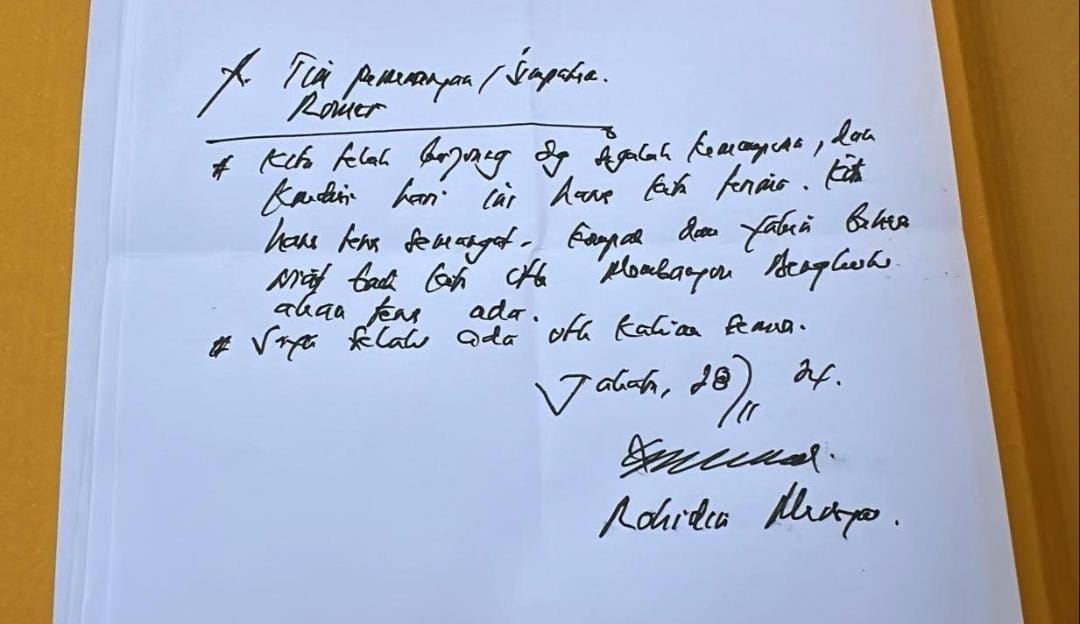 Yk. Tim pemenangan / Simpatisan.
Romer
# Kita telah berjuang dg segalah kemampuan, dan
Kondisi hari ini harus kita terima. Kita
harus terus semangat, kompak dan yakin bahwa
niat baik kita utk Membangun Bengkulu
akan terus ada.
# Saya selalu ada utk kalian semua.
Jakarta, 28/11 24.
Rohidin Mersyah.